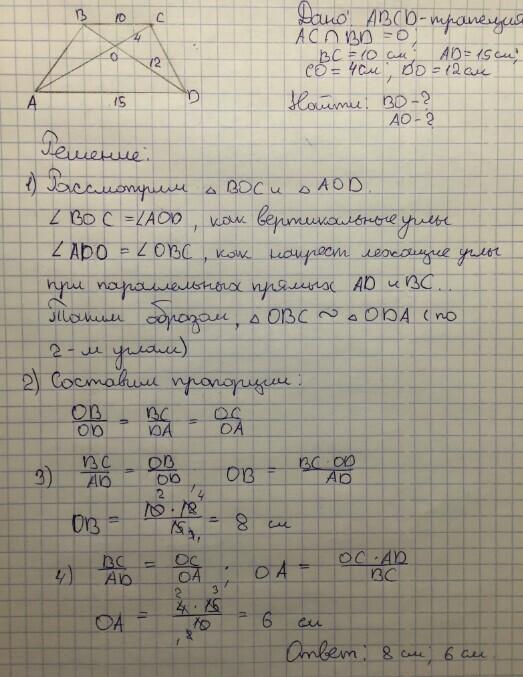 B 10 C
4
O
12
A 15 D
Дано: ABCD-трапеция
AC∩BD=O;
BC=10 см, AD=15см;
CO=4см; DO=12см
Найти: BO-?
AO-?
Решение:
1) Рассмотрим △ BOC и △ AOD.
∠ BOC =∠AOD, как вертикальные углы
∠ADO = ∠OBC, как накрест лежащие углы
при параллельных прямых AD и BC..
Таким образом, △ OBC ~ △ ODA (по
2-м углам)
2) Составим пропорции:
OB/OD = BC/DA = OC/OA
3) BC/AD = OB/OD; OB = BC·OD/AD
OB = 10·12/15 = 8 см
4) BC/AD = OC/OA; OA = OC·AD/BC
OA = 4·15/10 = 6 см
Ответ: 8 см; 6 см.